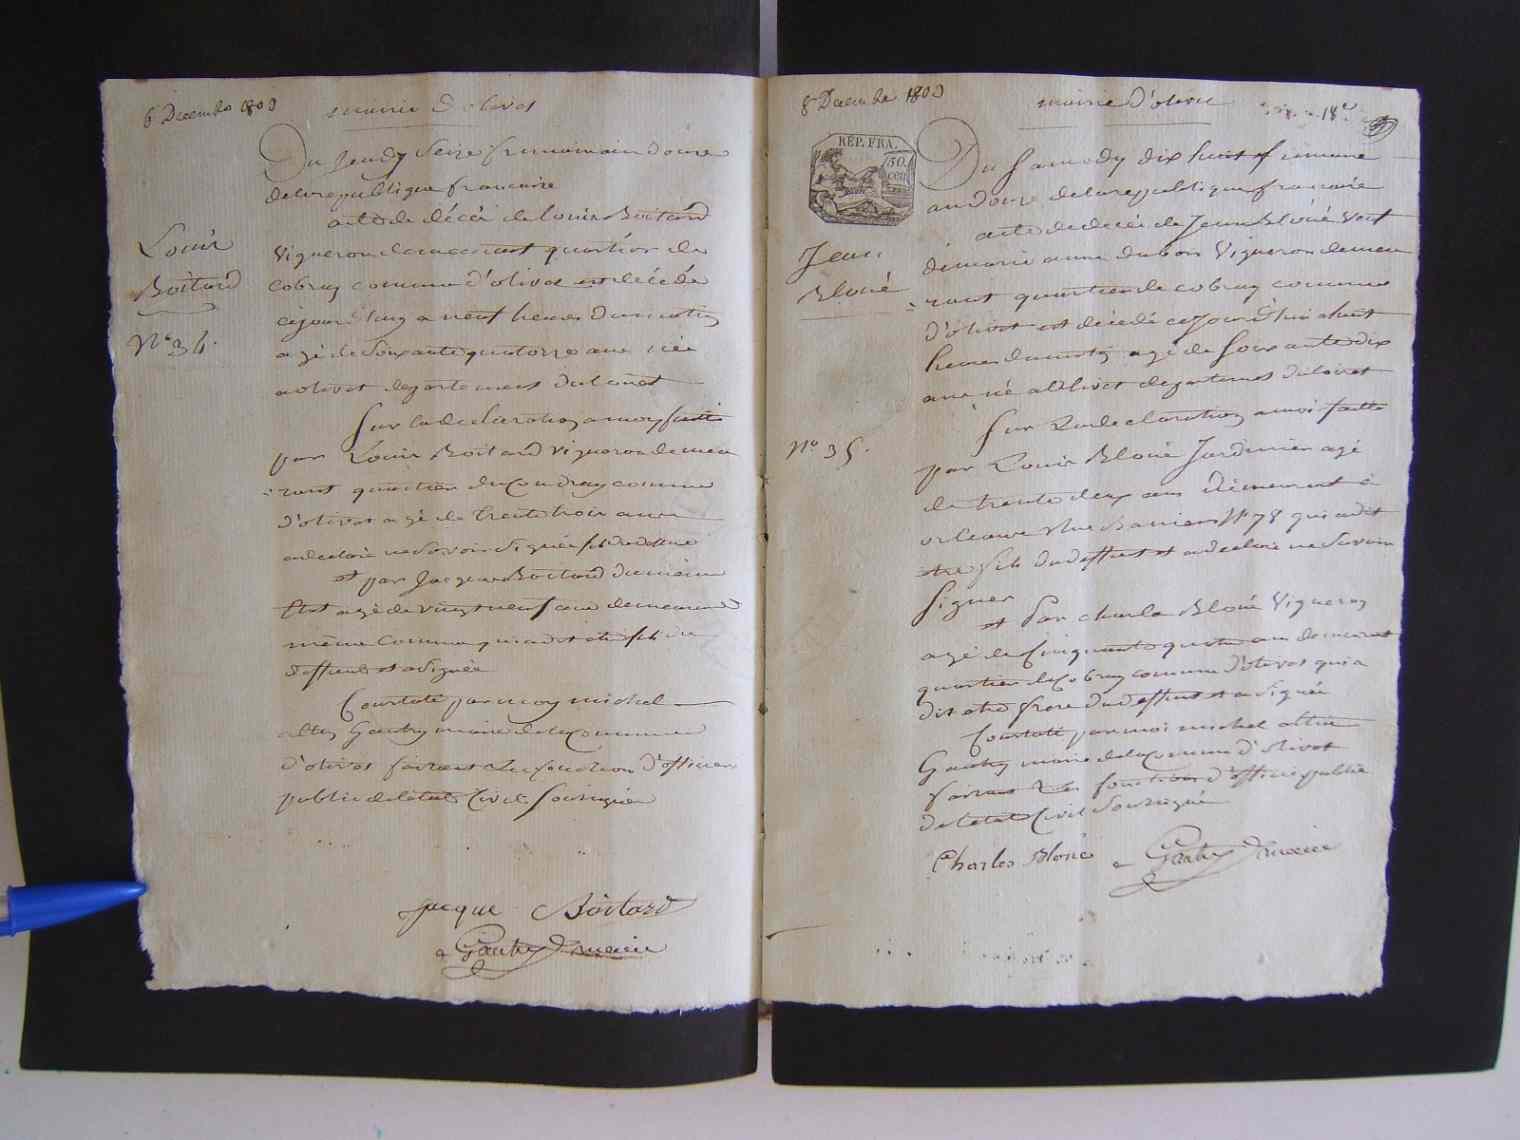 6 Decembre 1803
mairie d'olivet
Du Jeudy Seize frimaire an douze
de la republique francaise
acte de décéé de Louis Boitard
Vigneron demeurant quartier de
Cobray commune d'olivet est décédé
cejourd'huy a neuf heures du matin
agé de Soixante quatorze ans née
a olivet departement du Loiret
Louis
Boitard
N° 34.
Sur la declaration a moy faitte
par Louis Boitard vigneron demeu
rant quartier du Coudray commune
d'olivet agé de trente trois ans
a declaré ne Savoir Signée fils du deffunt
et par Jacque Boitard du même
Etat agé de vingt neuf ans demeurant
même commune qui a dit etre fils du
deffunt et a Signée
Constaté par moy michel
altin Gautry maire de la Commune
d'olivet faisant les fonction d'officier
public de letat Civil Soussignée
Jacque Boitard
a Gautry maire
8 Decembre 1803
mairie d'olivet
18e
RÉP. FRA.
50.
cen.
Du Samedy dix huit frimaire
an Douze de la republique francaise
acte de décéé de Jean Bloüé veuf
de marie anne dubois Vigneron demeu
rant quartier de cobray commune
d'olivet est décédé cejourd'hui a huit
heures du matin agé de Soixante dix
ans né a Olivet departement du Loiret
Jean
Bloüé
N° 35.
Sur La declaration a moi faitte
par Louis Bloüé Jardinier agé
de trente deux ans demeurant a
orleans Rue Bannier N° 78 qui a dit
etre fils du deffunt et a declaré ne Savoir
Signer
et Par charle Bloüé Vigneron
agé de Cinquante quatre ans demeurant
quartier de Cobray commune d'olivet qui a
dit etre frere du deffunt et a Signée
Constaté par moi michel altin
Gautry maire de la Commune d'olivet
faisant Les fonction d'officier public
de letat Civil Soussignée
Charles Blouë
a Gautry maire